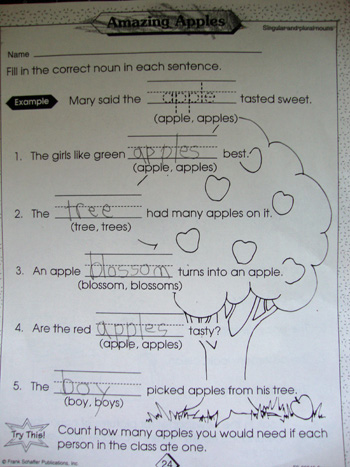 Amazing Apples
Singular and plural nouns
Name
Fill in the correct noun in each sentence.
Example Mary said the apple tasted sweet.
(apple, apples)
1. The girls like green apples best.
(apple, apples)
2. The tree had many apples on it.
(tree, trees)
3. An apple blossom turns into an apple.
(blossom, blossoms)
4. Are the red apples tasty?
(apple, apples)
5. The boy picked apples from his tree.
(boy, boys)
Try This! Count how many apples you would need if each
person in the class ate one.
© Frank Schaffer Publications, Inc.
24